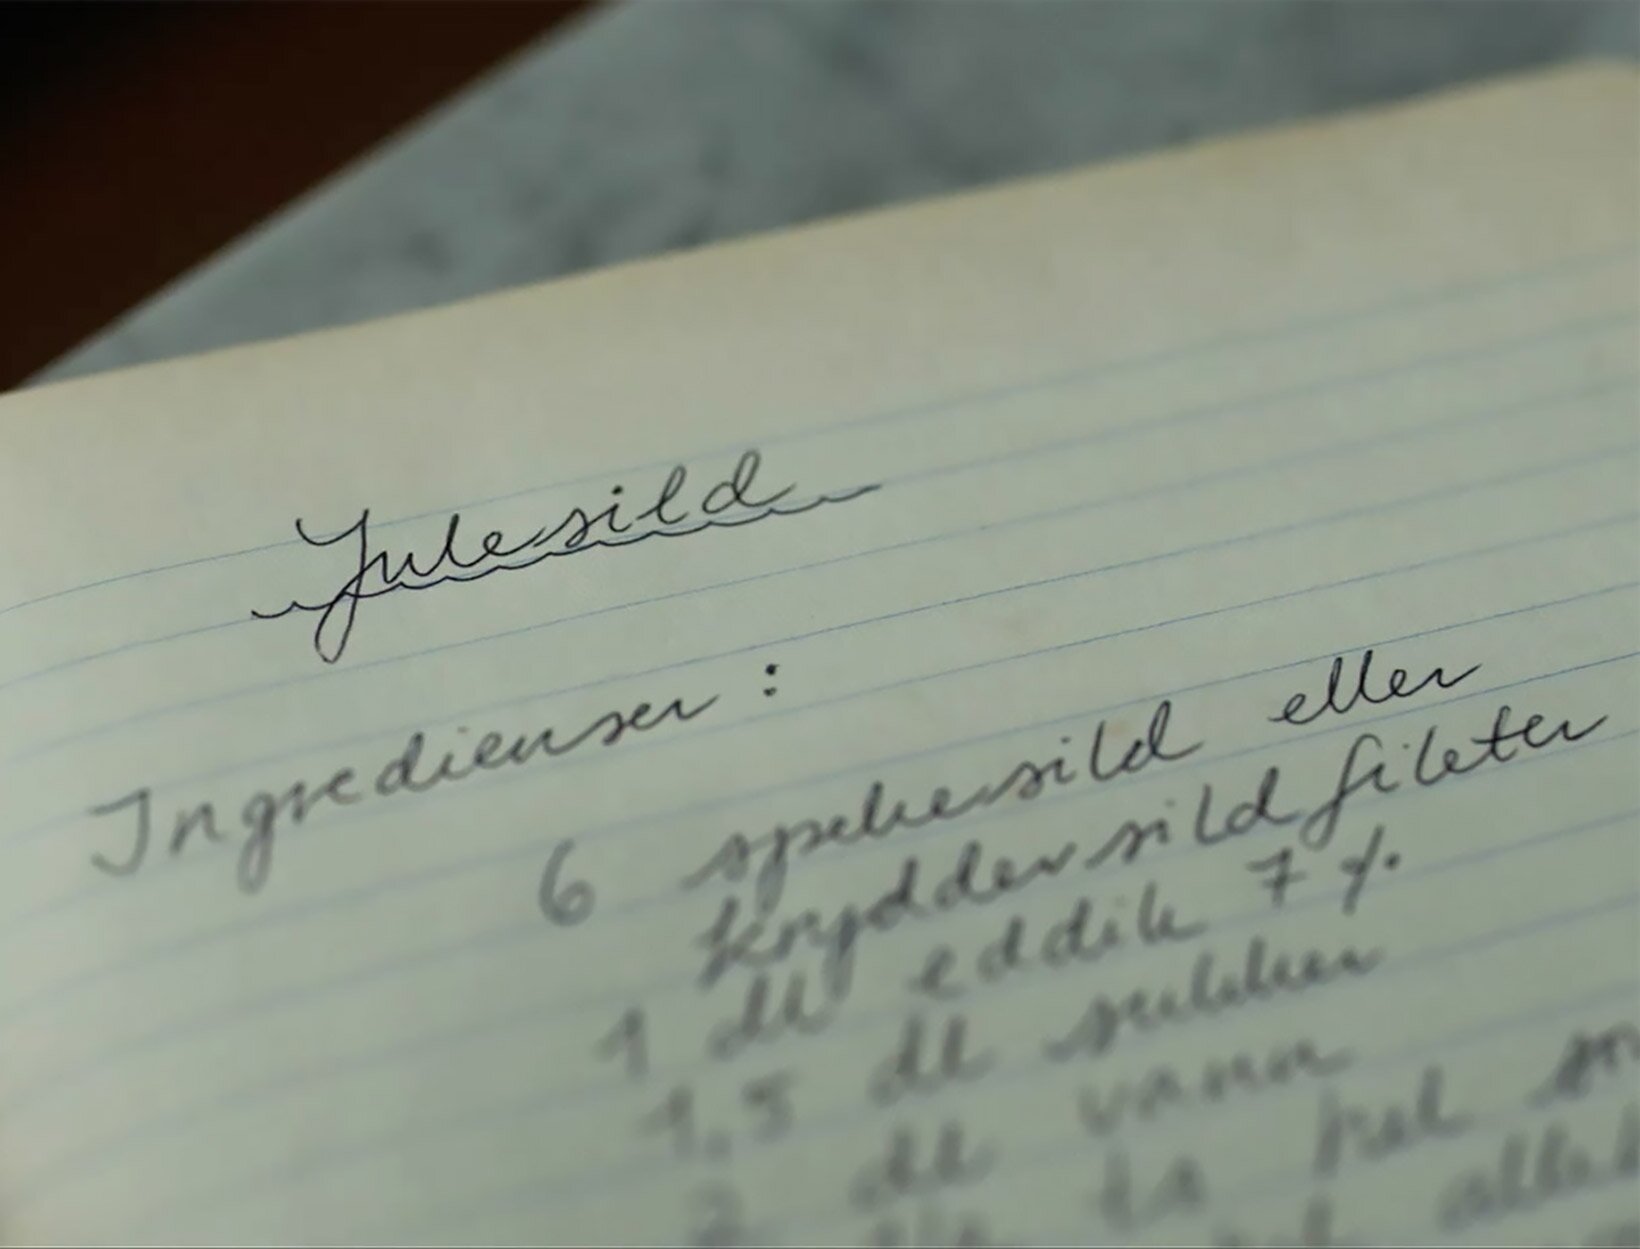 Julesild
Ingredienser :
6 spekesild eller
kryddersildfileter
1 dl eddik 7 %
1,5 dl sukker
2 dl vann
ts hel